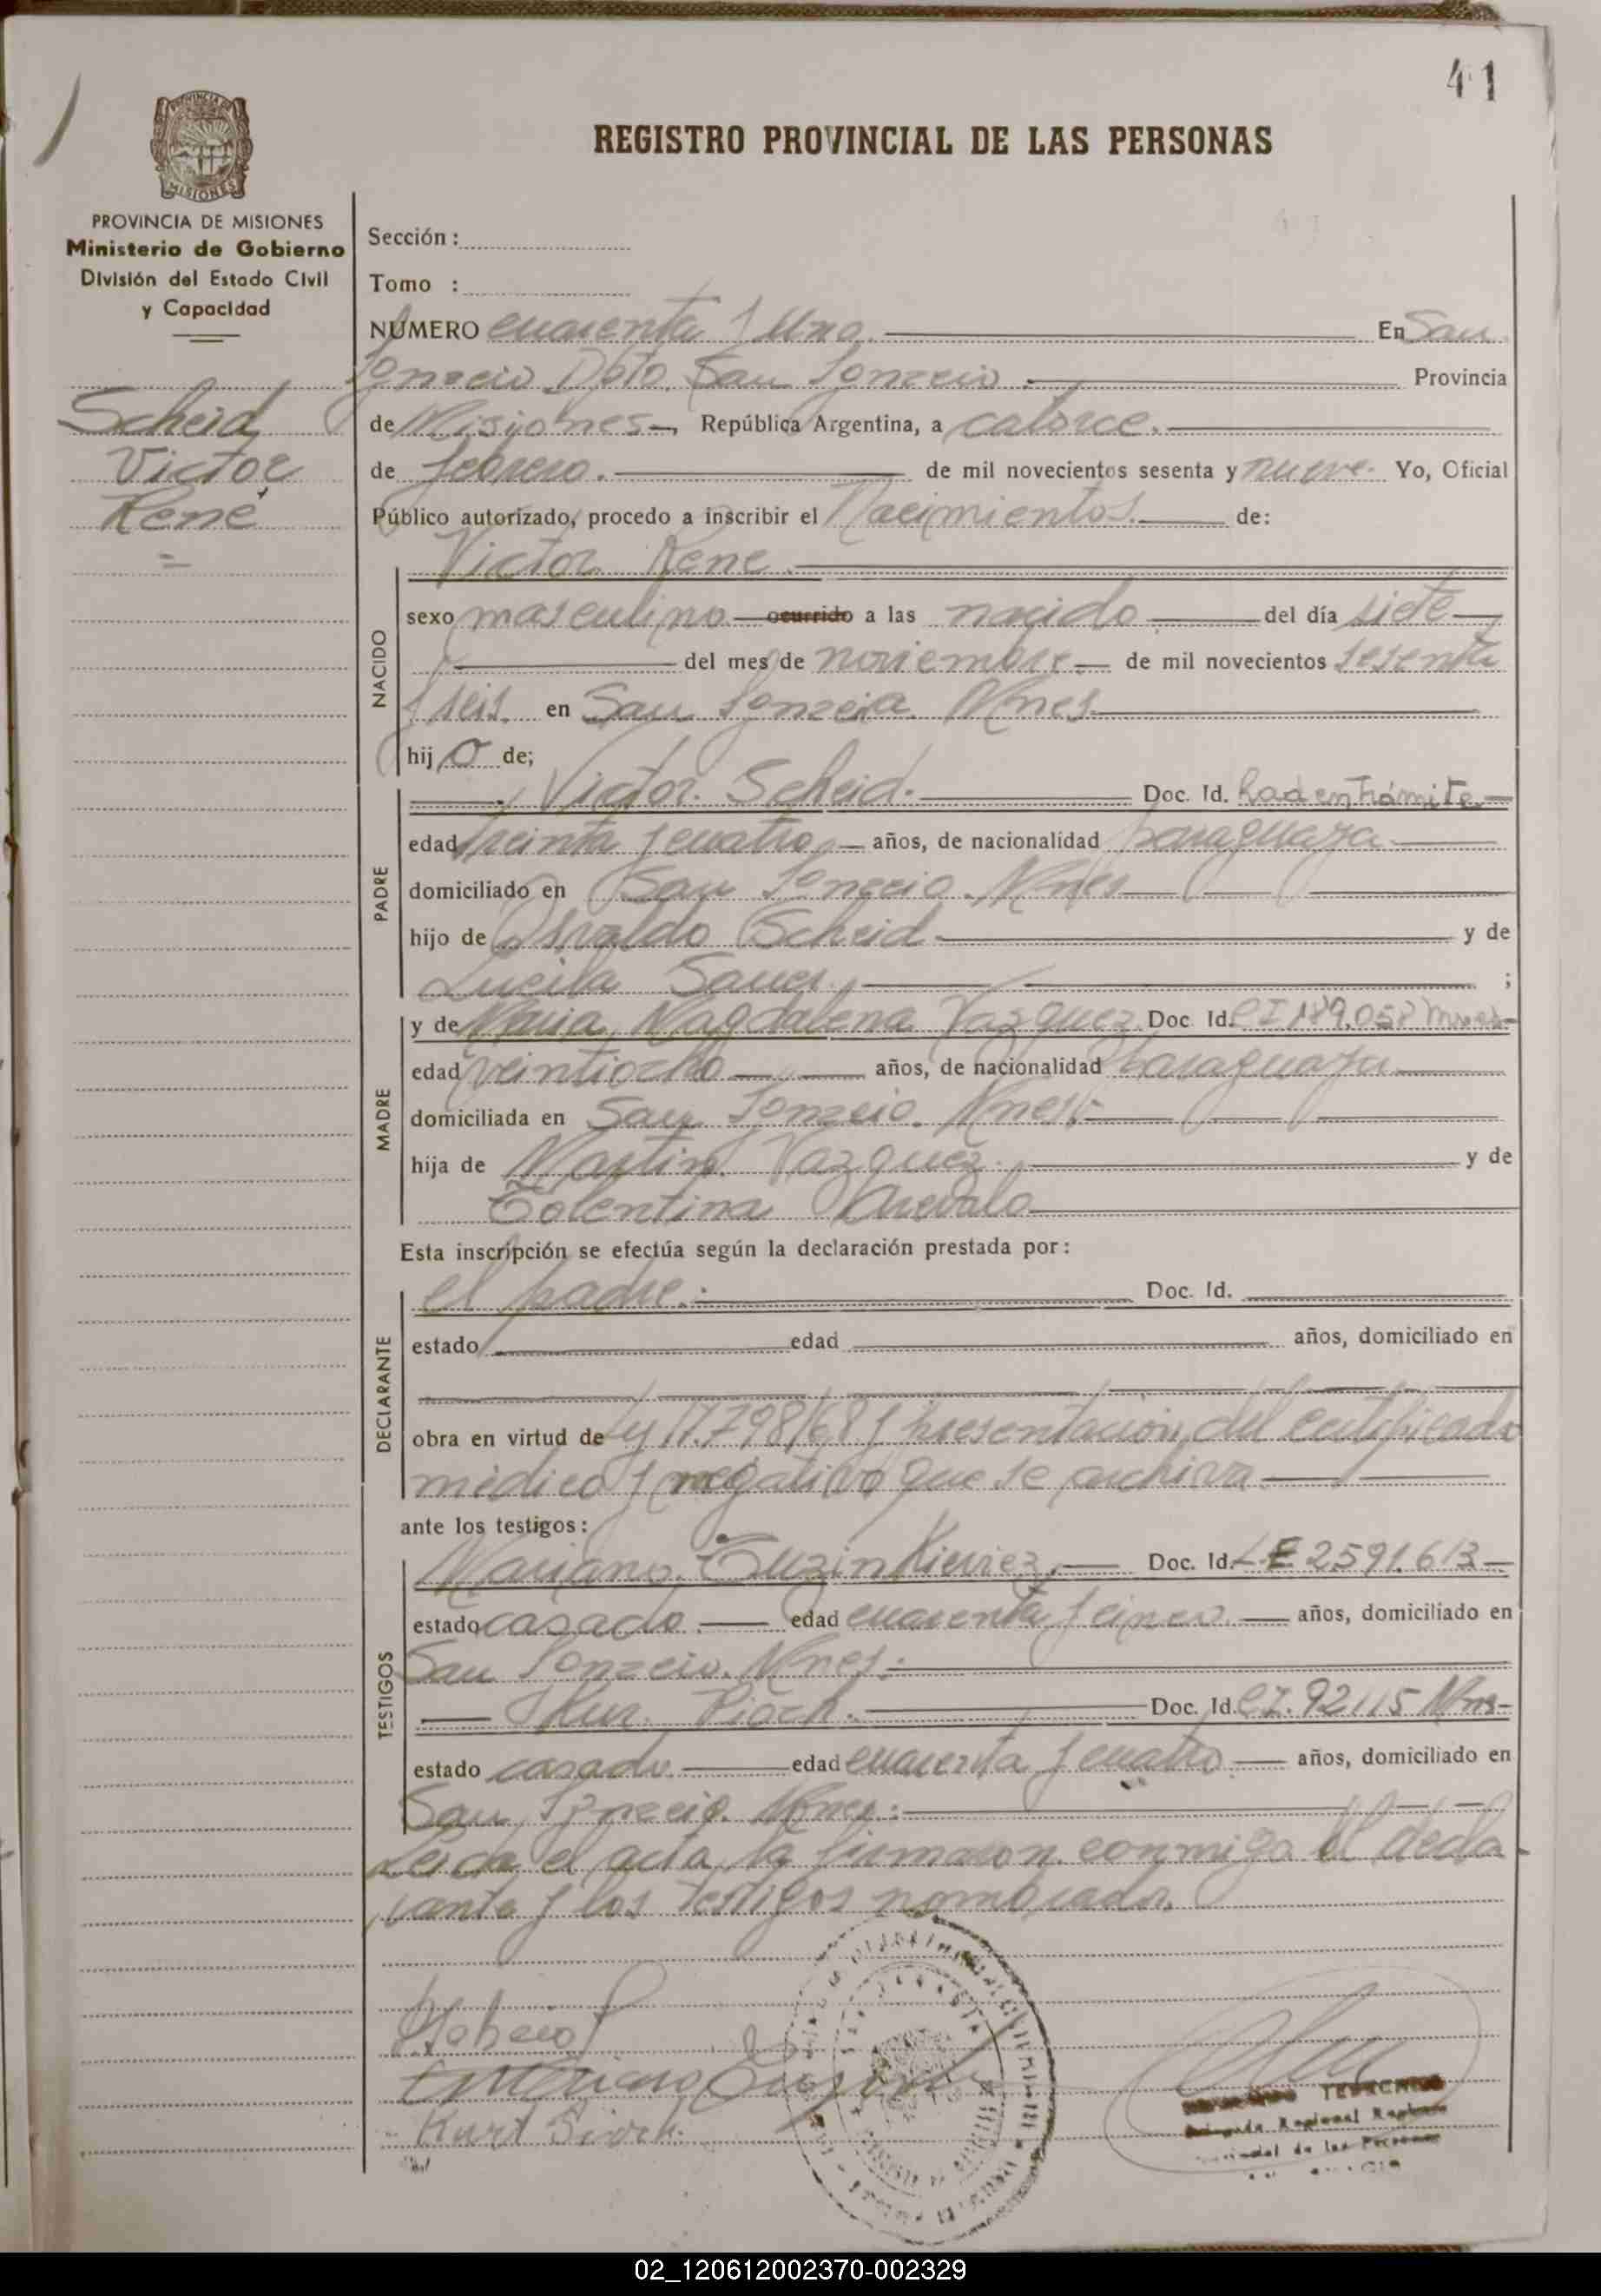 41
REGISTRO PROVINCIAL DE LAS PERSONAS
PROVINCIA DE MISIONES
Ministerio de Gobierno
División del Estado Civil
y Capacidad
Scheid
Victor
René
Sección:
Tomo :
NÚMERO cuarenta y Uno. En San
Ignacio Dpto. San Ignacio Provincia
de Misiones, República Argentina, a catorce.
de febrero. de mil novecientos sesenta y nueve. Yo, Oficial
Público autorizado, procedo a inscribir el Nacimientos. de:
Victor Rene
NACIDO
sexo masculino ocurrido a las nacido del día siete
del mes de noviembre de mil novecientos sesenta
y seis. en San Ignacio Mnes
hijo de;
PADRE
Victor Scheid. Doc. Id. Rad en trámite
edad treinta y cuatro años, de nacionalidad paraguaya
domiciliado en San Ignacio. Mnes
hijo de Osvaldo Scheid y de
Lucila Sauer ;
MADRE
y de Maria Magdalena Vazquez Doc Id. CI 189.058 Mnes
edad veintiocho años, de nacionalidad paraguaya
domiciliada en San Ignacio. Mnes
hija de Martin Vazquez y de
Tolentina Arevalo
Esta inscripción se efectúa según la declaración prestada por:
DECLARANTE
el padre. Doc. Id.
estado edad años, domiciliado en
obra en virtud de Ley 17.798/68 y presentación del certificado
médico y negativo que se archiva
ante los testigos:
TESTIGOS
Mariano Doc. Id. LE 2591.613
estado casado edad cuarenta y cinco años, domiciliado en
San Ignacio. Mnes.
Pioch. Doc. Id. CI. 92115 Mns
estado casado edad cuarenta y cuatro años, domiciliado en
San Ignacio. Mnes.
Leida el acta, la firmaron conmigo el decla
rante y los testigos nombrados.
Kurt Pioch.
02_120612002370-002329